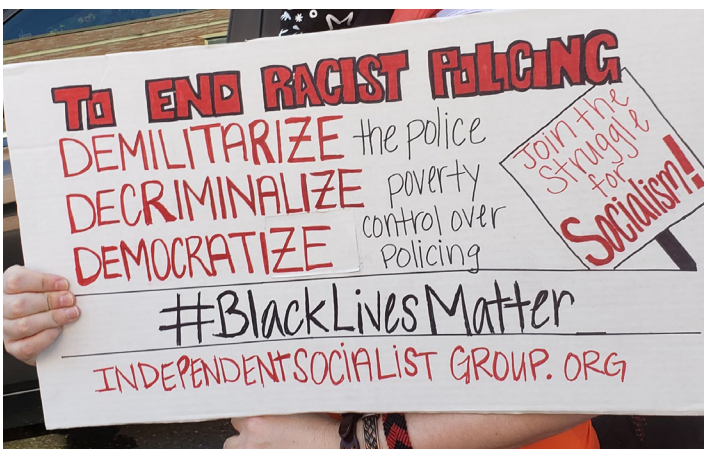 TO END RACIST POLICING
DEMILITARIZE the police
DECRIMINALIZE poverty
DEMOCRATIZE control over
policing
Join the
struggle
for
Socialism!
#BlackLivesMatter
INDEPENDENTSOCIALIST GROUP.ORG